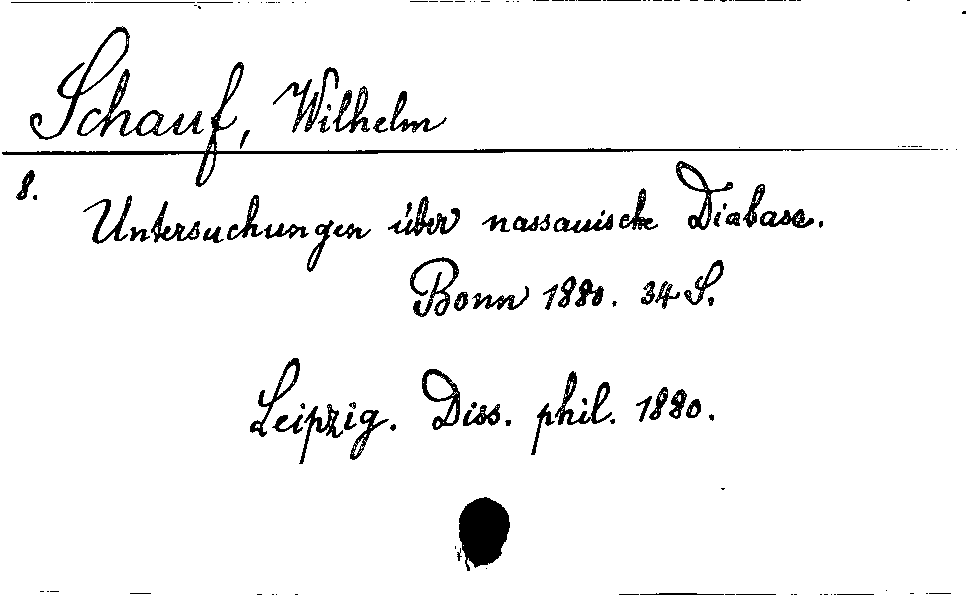 Schauf, Wilhelm
8.
Untersuchungen über nassauische Diabase.
Bonn 1880. 34 S.
Leipzig. Diss. phil. 1880.